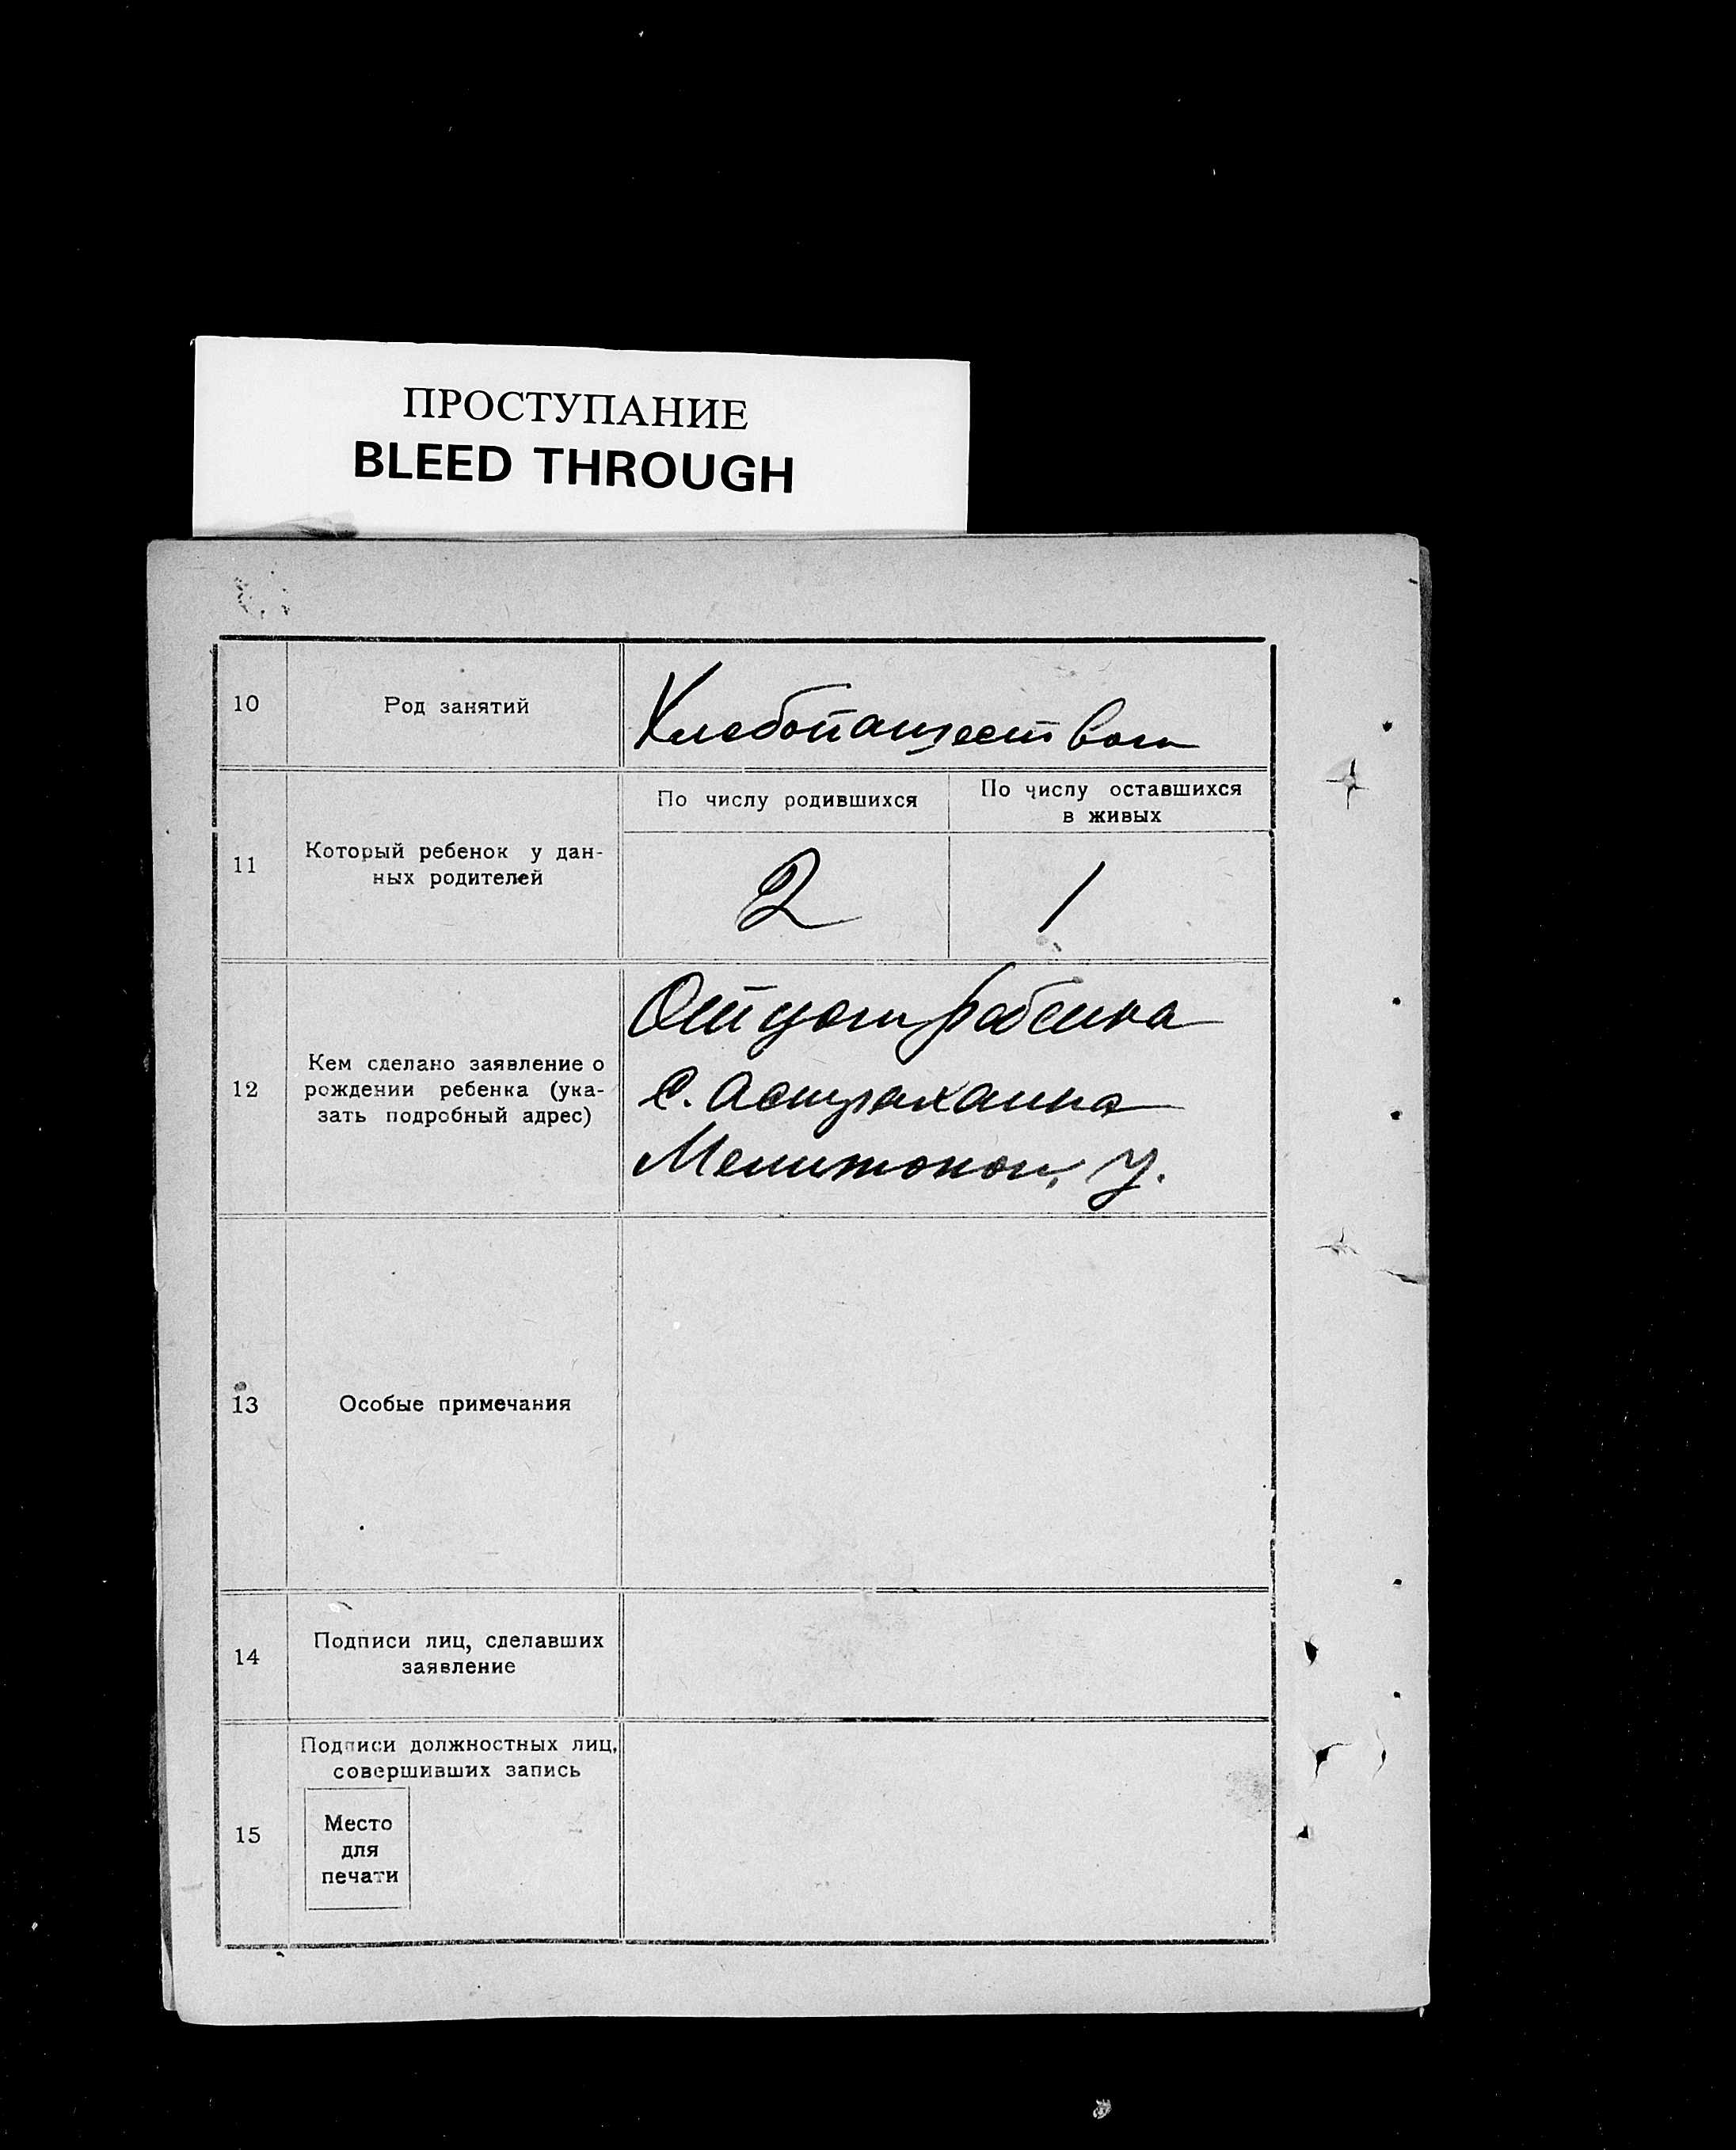 ПРОСТУПАНИЕ
BLEED THROUGH
10
Род занятий
Хлебопашеством
11
Который ребенок у дан-
ных родителей
По числу родившихся
По числу оставшихся
в живых
2
1
12
Кем сделано заявление о
рождении ребенка (ука-
зать подробный адрес)
Отцом ребенка
с. Астраханка
Мелитопол. у.
13
Особые примечания
14
Подписи лиц, сделавших
заявление
15
Подписи должностных лиц,
совершивших запись
Место
для
печати